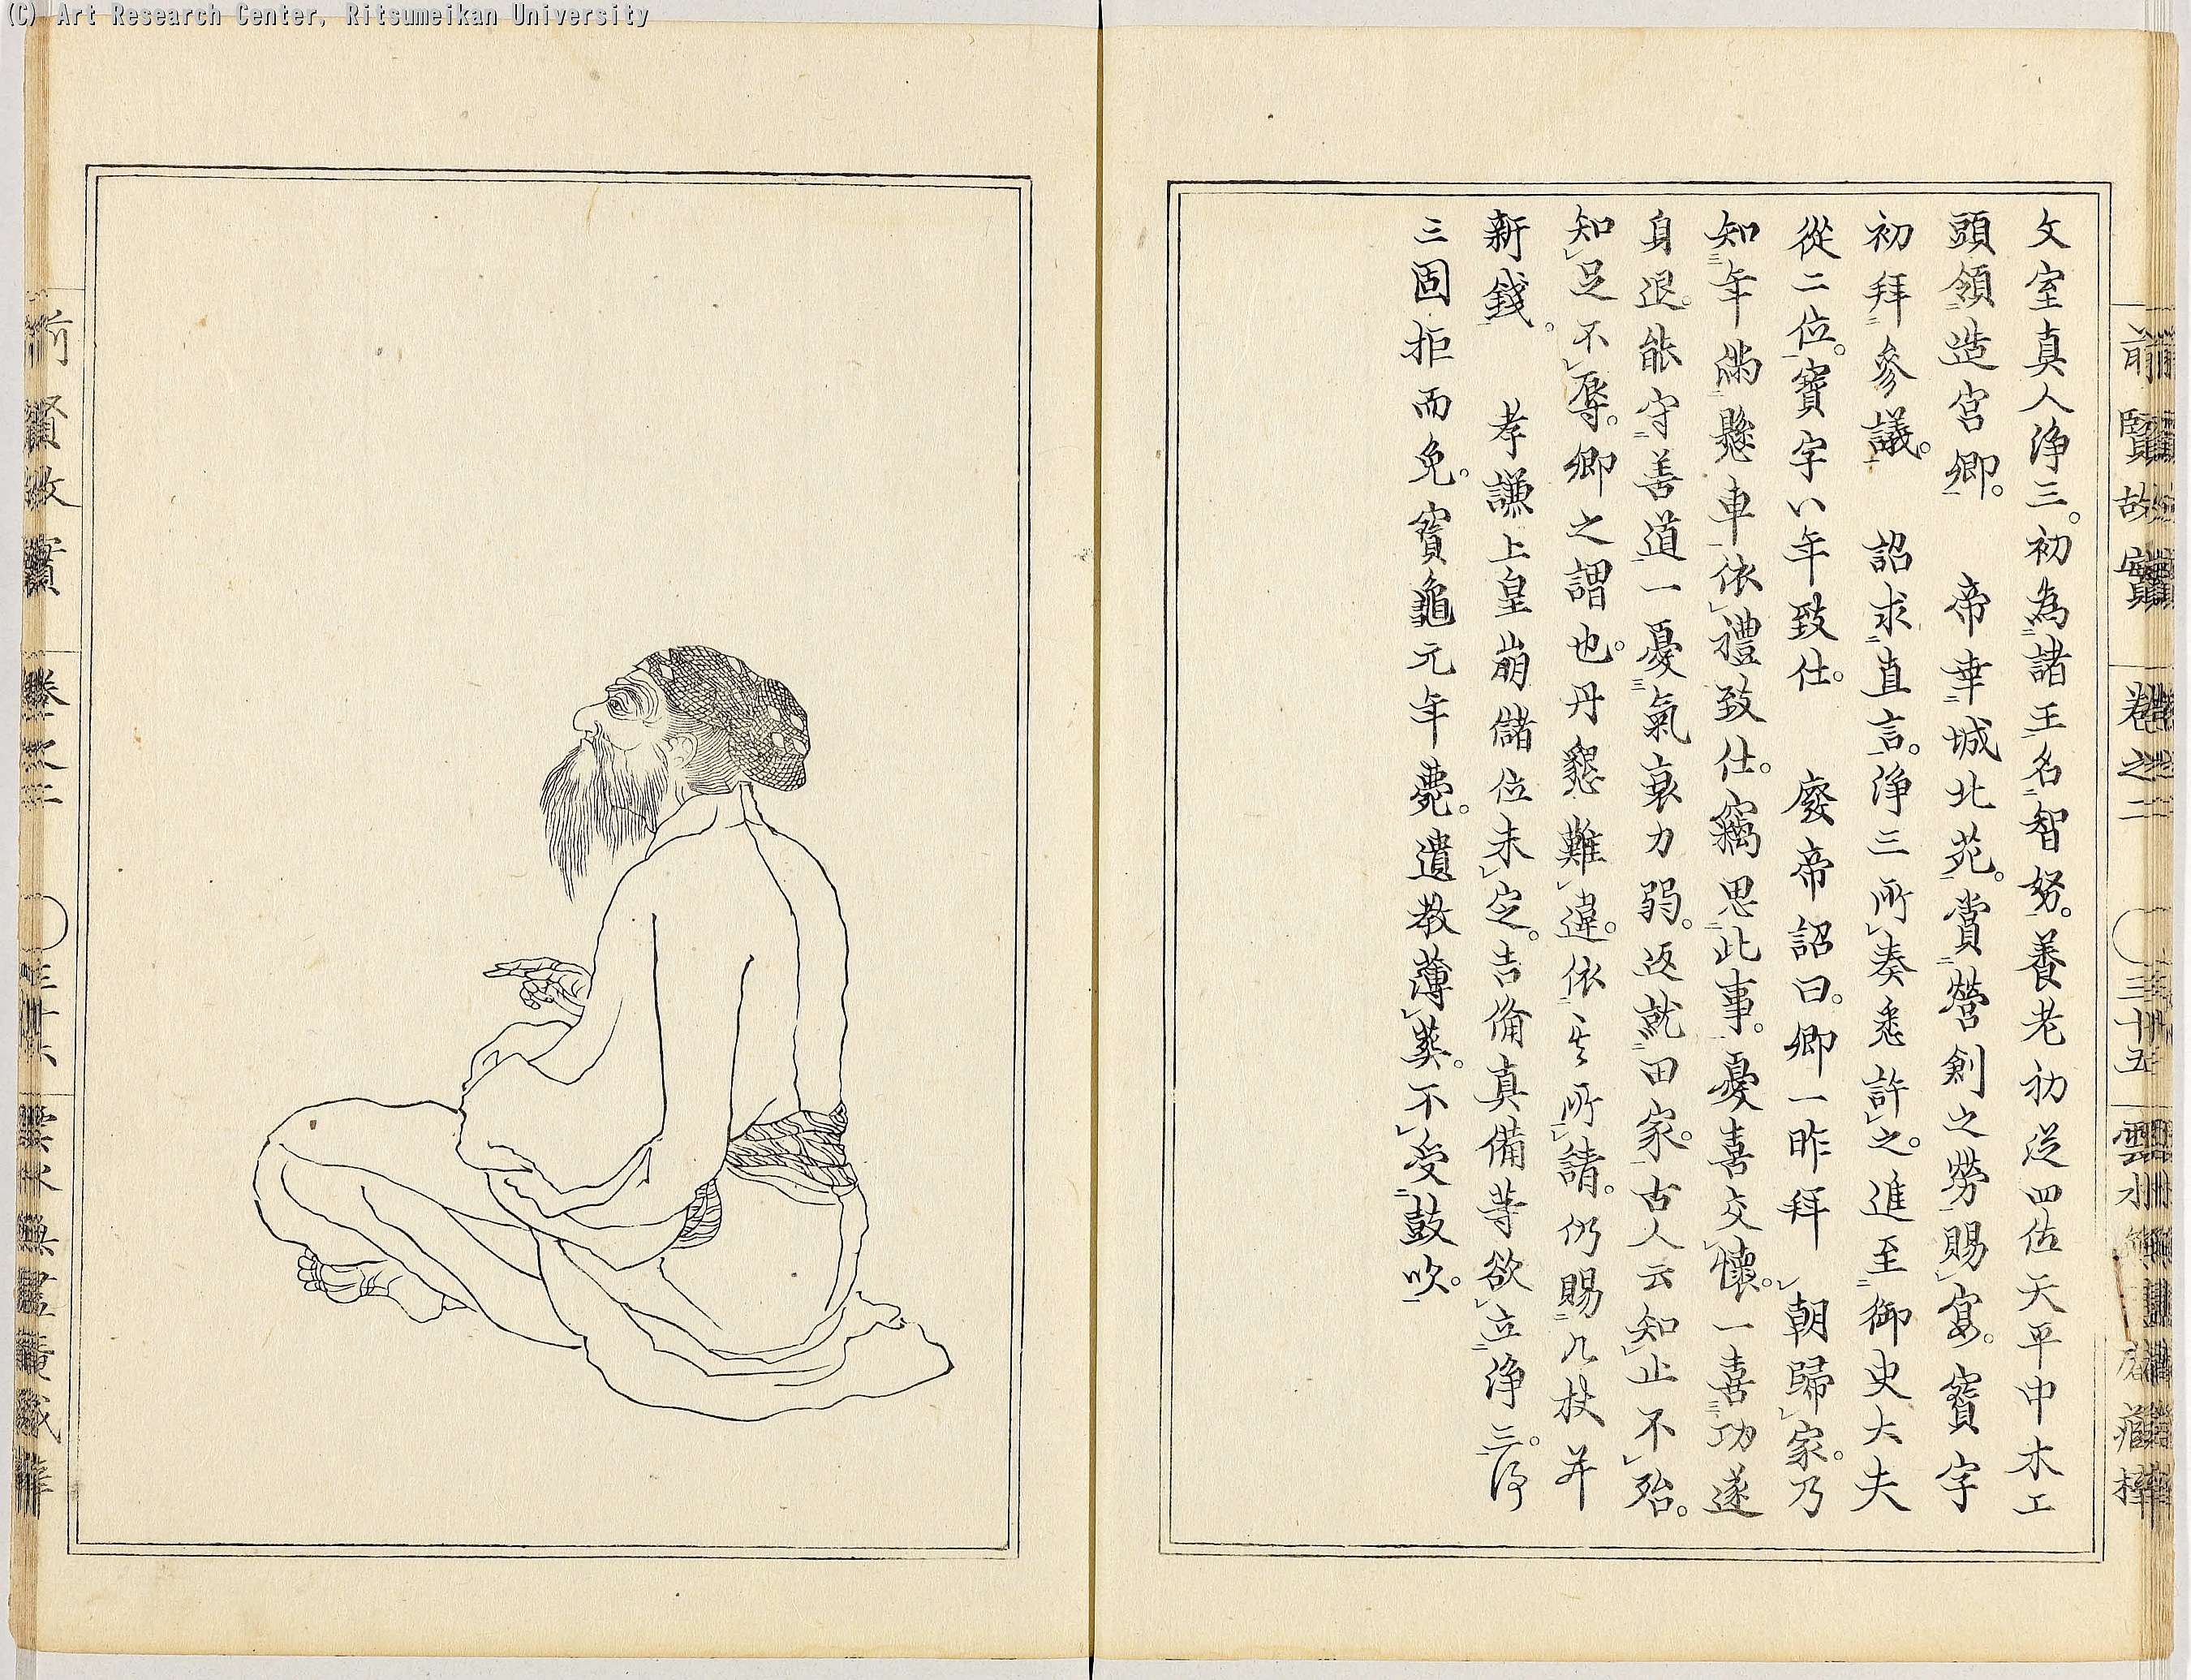 (C) Art Research Center, Ritsumeikan University
前賢故實 卷之二 〇三十五 雲水無盡庵藏梓
文室真人淨三。初為諸王名智努。養老初從四位天平中木工
頭領造宮卿。 帝幸城北苑。賞營創之勞賜宴。寶字
初拜參議。 詔求直言。淨三所奏悉許之。進至御史大夫
從二位。寶字八年致仕。 廢帝詔曰。卿一昨拜 朝歸家。乃
知年滿懸車依禮致仕。竊思此事。憂喜交懷。一喜功遂
身退。能守善道一憂氣衰力弱。返就田家。古人云知止不殆。
知足不辱。卿之謂也。丹懇難違。依其所請。仍賜几杖并
新錢。 孝謙上皇崩儲位未定。吉備真備等欲立淨三。淨
三固拒而免。寶龜元年薨。遺教薄葬。不受鼓吹。
前賢故實 卷之二